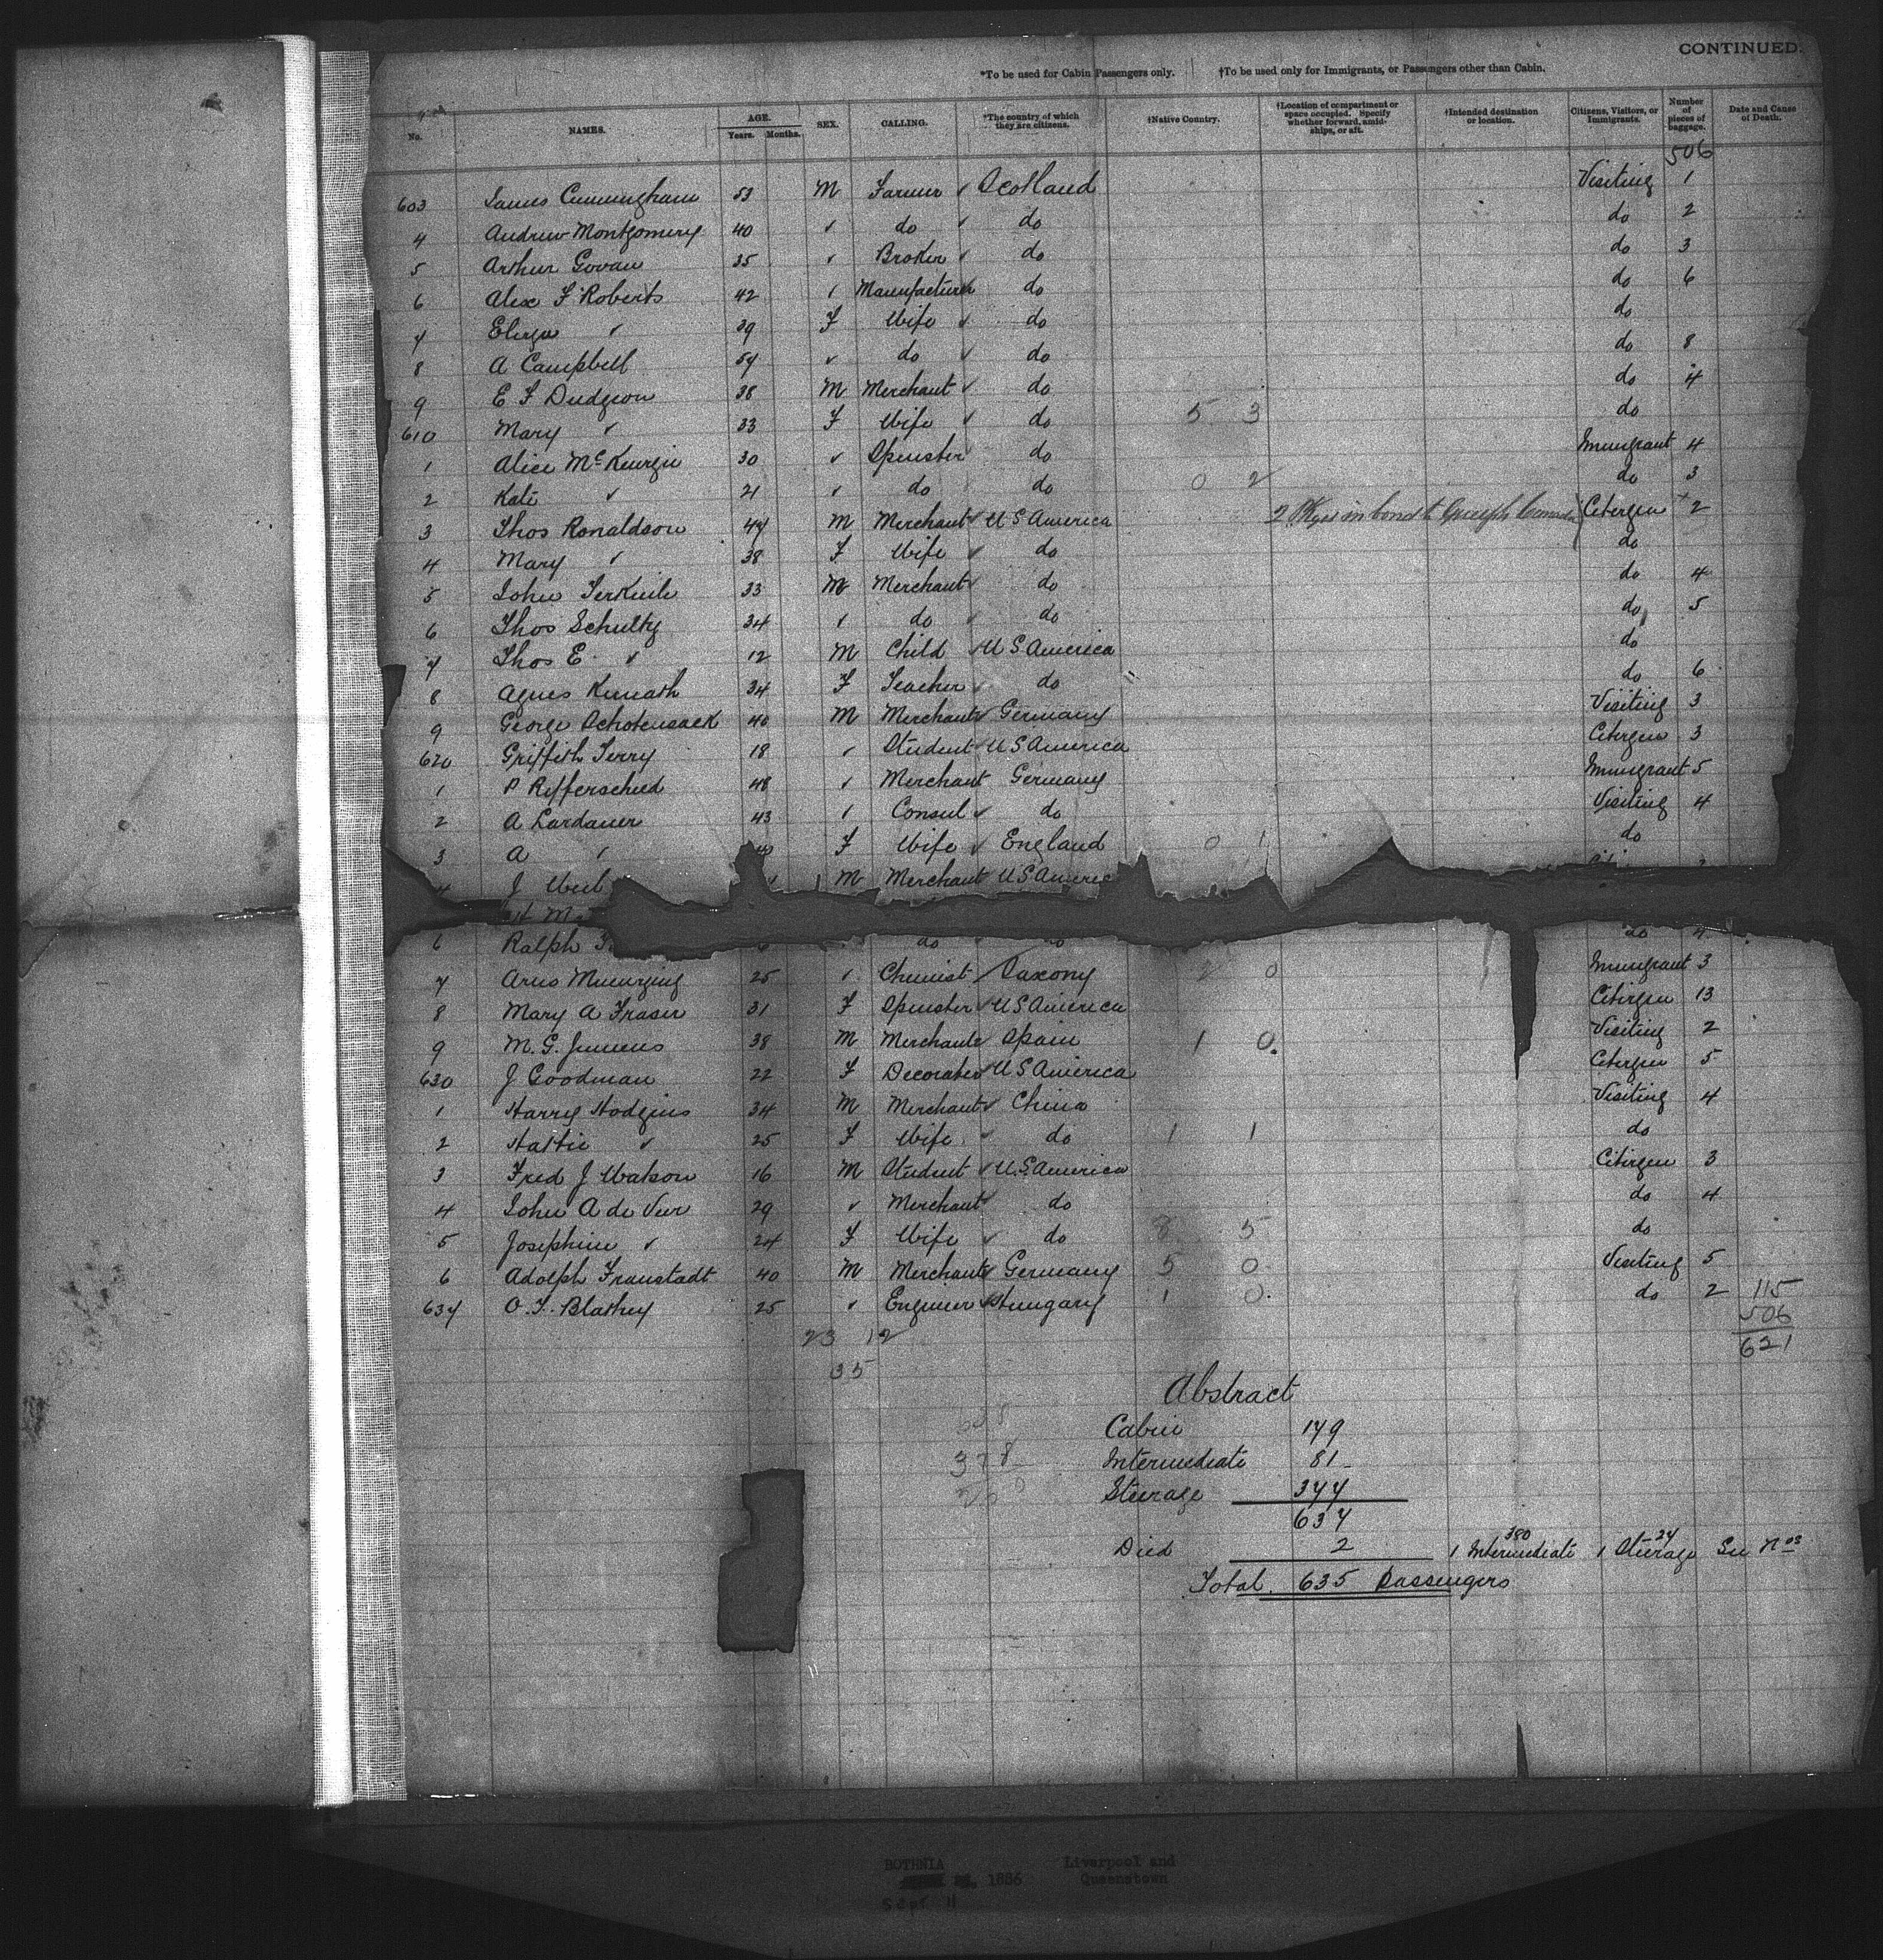 CONTINUED.
*To be used for Cabin Passengers only. †To be used only for Immigrants, or Passengers other than Cabin.
No. NAMES. AGE. Years. Months. SEX. CALLING. *The country of which they are citizens. †Native Country. †Location of compartment or space occupied. Specify whether forward, amidships, or aft. †Intended destination or location. Citizens, Visitors, or Immigrants. Number of pieces of baggage. Date and Cause of Death.
506
603 James Cunningham 53 M Farmer Scotland Visiting 1
4 Andrew Montgomery 40 " do do do 2
5 Arthur Govan 35 " Broker do do 3
6 Alex F Roberts 42 " Manufacturer do do 6
7 Eliza " 39 F Wife do do
8 A Campbell 57 " do do do 8
9 E F Dudgeon 38 M Merchant do do 4
610 Mary " 33 F Wife do 5 3 do
1 Alice McKenzie 30 " Spinster do Immigrant 4
2 Kate " 21 " do do 0 2 do 3
3 Thos Ronaldson 47 M Merchant U S America 2 Pkgs in bond to Guelph Canada Citizen 2
4 Mary " 38 F Wife do do
5 John TerKuile 33 M Merchant do do 4
6 Thos Schultz 34 " do do do 5
7 Thos E " 12 M Child U S America do
8 Agnes 34 F Teacher do do 6
9 George Schotensack 40 M Merchant Germany Visiting 3
620 Griffith Terry 18 " Student U S America Citizen 3
1 P Rifferscheid 48 " Merchant Germany Immigrant 5
2 A Lardauer 43 " Consul do Visiting 4
3 A " F Wife England 0 1 do
4 J M Merchant U S Americ
6 Ralph do do do 4
7 Arno 25 " Chemist Saxony 2 0 Immigrant 3
8 Mary A Fraser 31 F Spinster U S America Citizen 13
9 M. G. 38 M Merchant Spain 1 0 Visiting 2
630 J Goodman 22 F Decorator U S America Citizen 5
1 Harry Hodgins 34 M Merchant China Visiting 4
2 Hattie " 25 F Wife do 1 1 do
3 Fred J Watson 16 M Student U.S. America Citizen 3
4 John A de Veer 29 " Merchant do do 4
5 Josephine " 24 F Wife do 8 5 do
6 Adolph Fraustadt 40 M Merchant Germany 5 0 Visiting 5
637 O. T. Blathy 25 " Engineer Hungary 1 0 do 2 115
506
23 12 621
35
Abstract
Cabin 179
378 Intermediate 81
Steerage 377
637
Died 2 1 Intermediate 380 1 Steerage 24 See Nos
Total 635 Passengers
BOTHNIA Liverpool and
1886 Queenstown
Sept 11